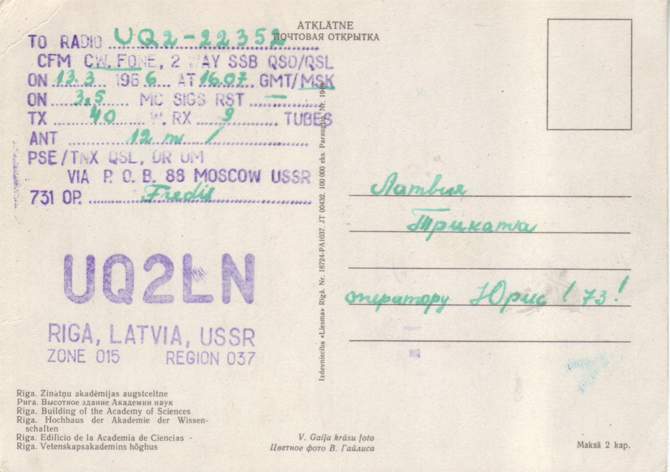 ATKLĀTNE
ПОЧТОВАЯ ОТКРЫТКА
TO RADIO UQ2-22352
CFM CW, FONE, 2 WAY SSB QSO/QSL
ON 13.3 1966 AT 16.07 GMT/MSK
ON 3,5 MC SIGS RST —
TX 40 W. RX 9 TUBES
ANT 12 m /
PSE/TNX QSL, DR OM
VIA P. O. B. 88 MOSCOW USSR
731 OP. Fredis
UQ2LN
RIGA, LATVIA, USSR
ZONE 015 REGION 037
Rīga. Zinātņu akadēmijas augstceltne
Рига. Высотное здание Академии наук
Riga. Building of the Academy of Sciences
Riga. Hochhaus der Akademie der Wissen-
schaften
Riga. Edificio de la Academia de Ciencias
Riga. Vetenskapsakademins höghus
Izdevniecība «Liesma» Rīgā. Nr. 18724-PA1037. JT 00432. 100 000 eks. Parauga Nr.
Латвия
Триката
оператору Юрис! 73!
V. Gaiļa krāsu foto
Цветное фото В. Гайлиса
Maksā 2 kap.